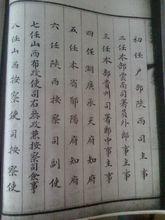 初任户部陝西司主事
二任本部雲南司署員外郎主事
三任本部貴州司署郎中事主事
四任湖廣承天府知府
五任本省鄖陽府知府
六任陝西按察司副使
七任山西布政使司右叅政兼按察司僉事
八任山西按察使司按察使